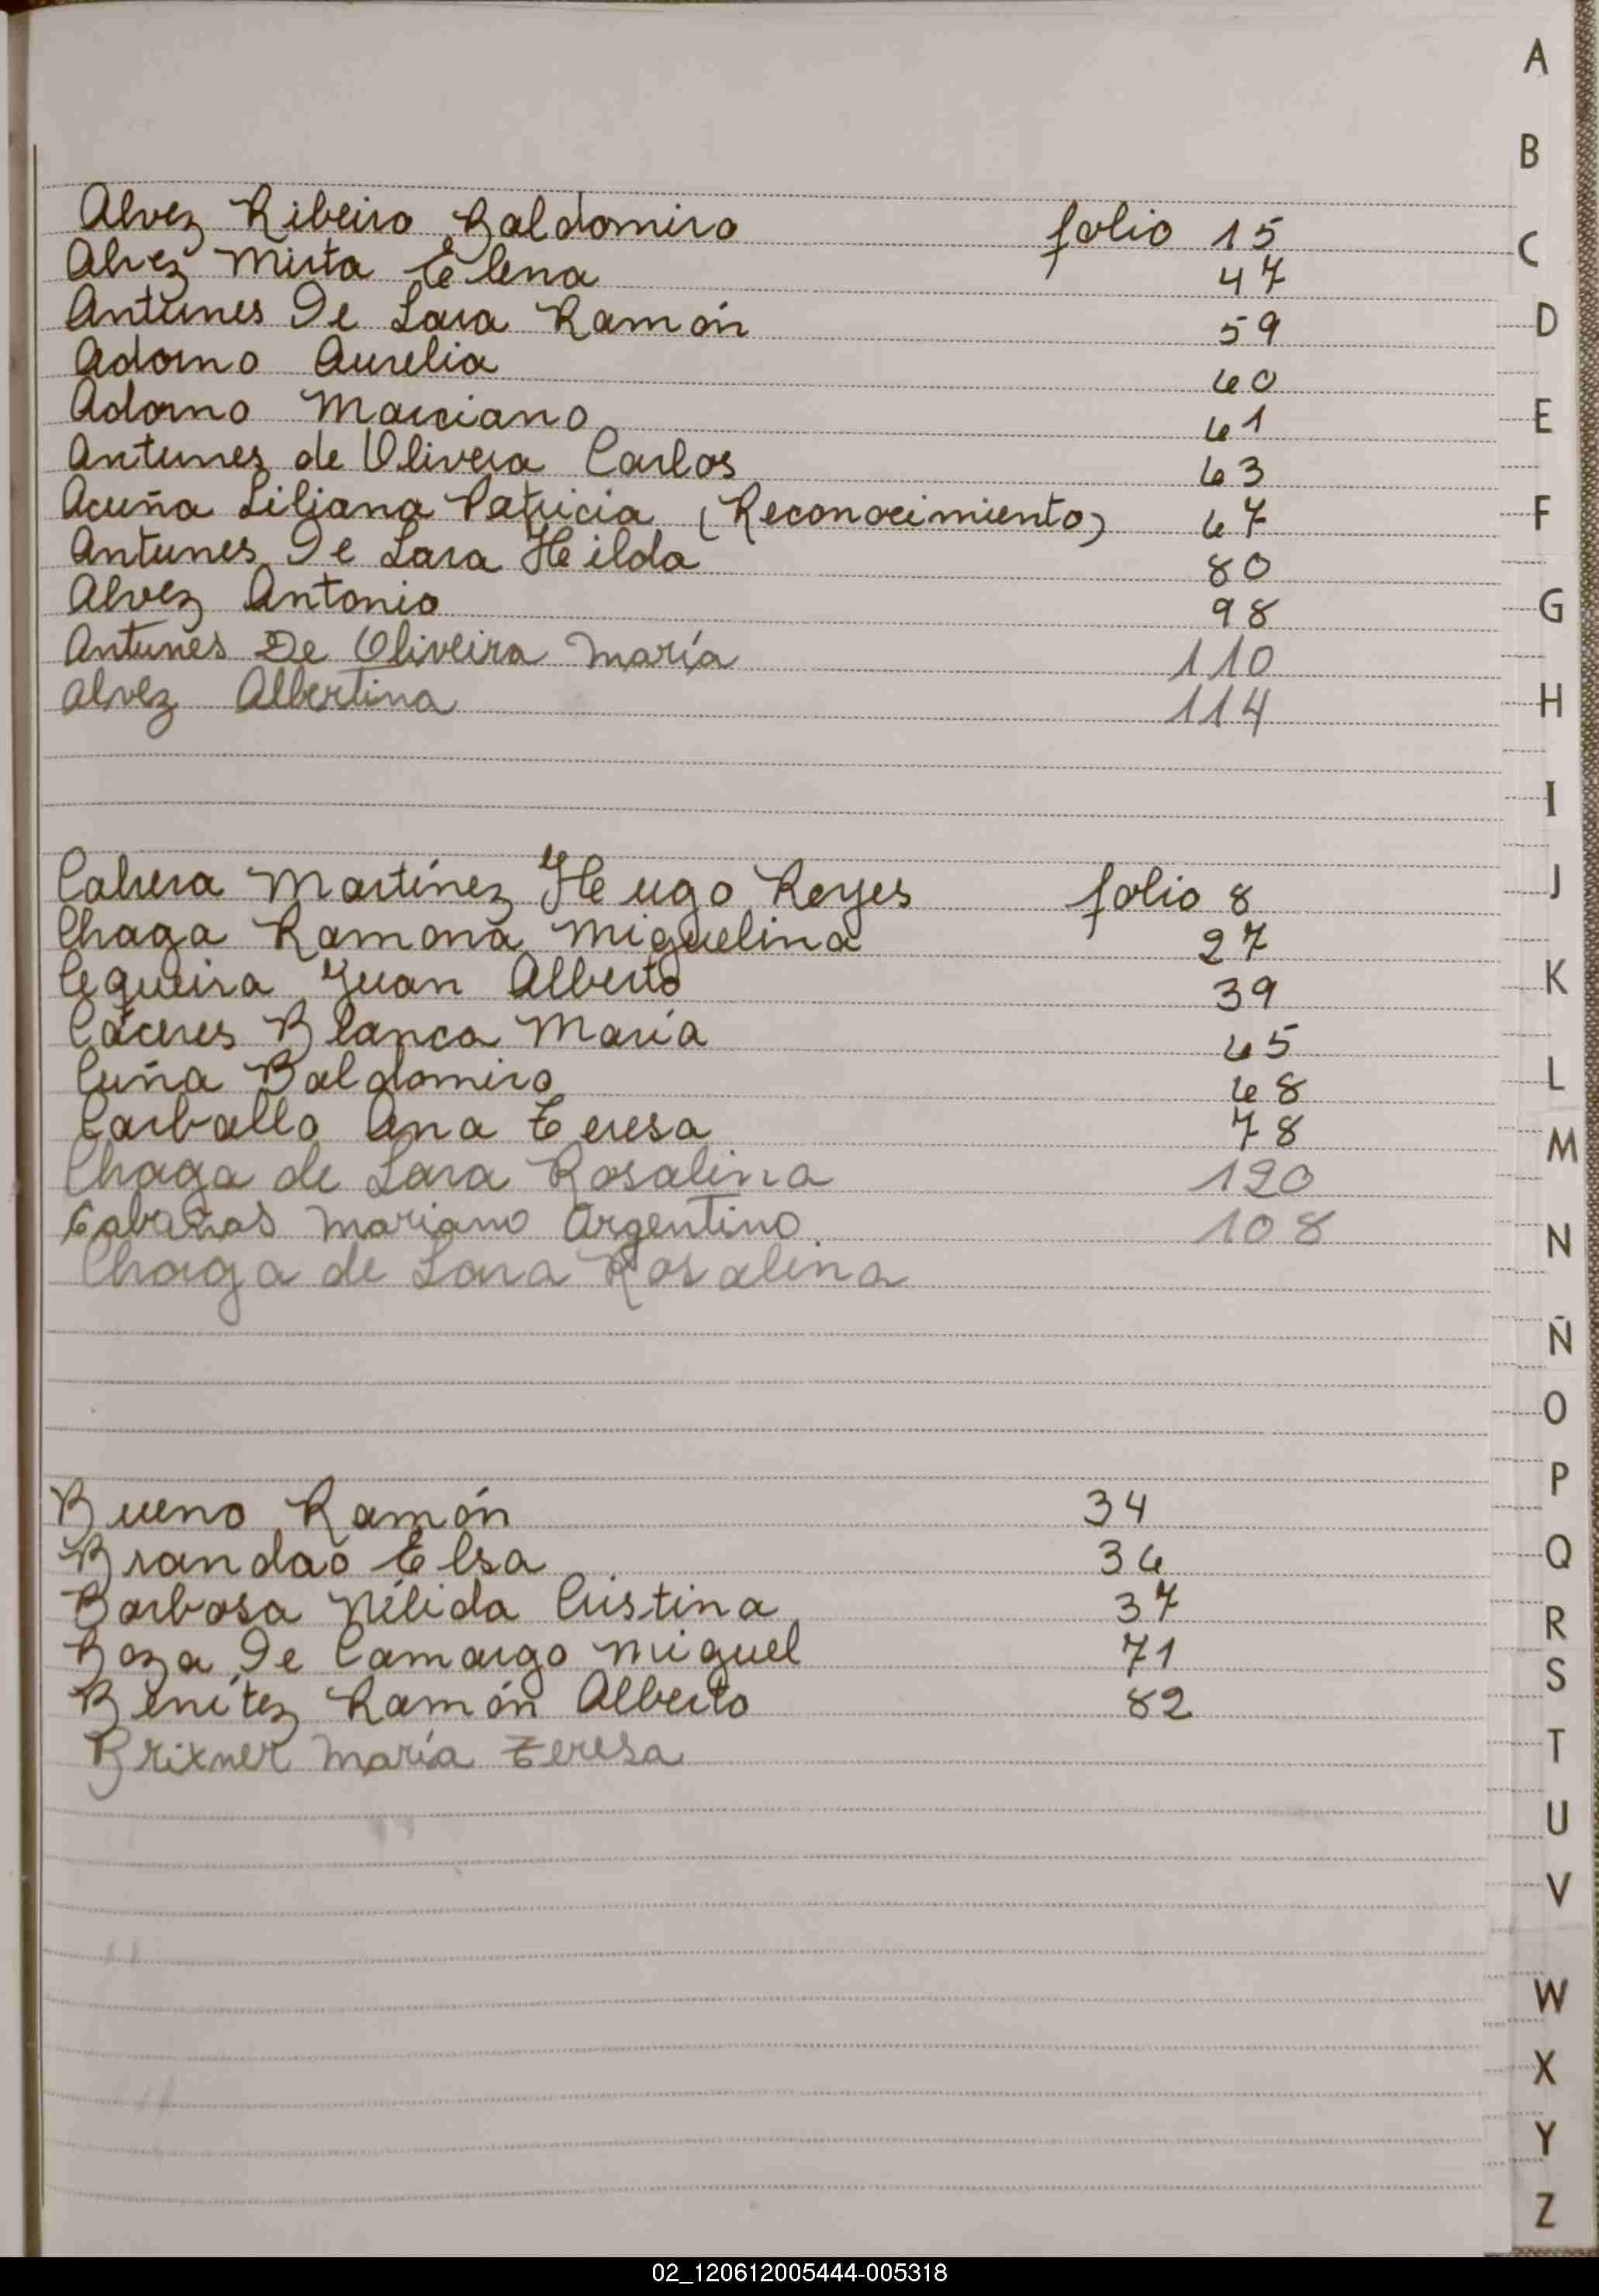 Alvez Ribeiro Baldomiro folio 15
Alvez Mirta Elena 47
Antunes De Lara Ramón 59
Adorno Aurelia 60
Adorno Marciano 61
Antunez de Olivera Carlos 63
Acuña Liliana Patricia (Reconocimiento) 67
Antunes De Lara Hilda 80
Alvez Antonio 98
Antunes De Oliveira María 110
Alvez Albertina 114
Cabrera Martínez Hugo Reyes folio 8
Chaga Ramona Miguelina 27
Cequeira Juan Alberto 39
Cáceres Blanca María 65
Cuña Baldomiro 68
Carballo Ana Teresa 78
Chaga de Lara Rosalina 120
Cabañas Mariano Argentino 108
Chaga de Lara Rosalina
Bueno Ramón 34
Brandao Elsa 36
Barbosa Nélida Cristina 37
Boza De Camargo Miguel 71
Benítez Ramón Alberto 82
Brixner María Teresa
A
B
C
D
E
F
G
H
I
J
K
L
M
N
Ñ
O
P
Q
R
S
T
U
V
W
X
Y
Z
02_120612005444-005318